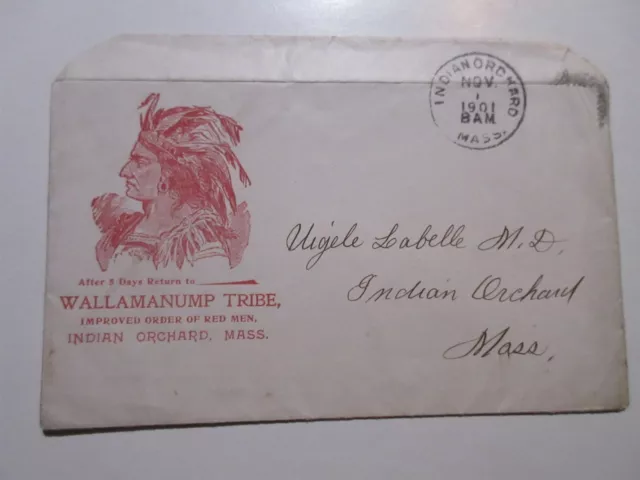 INDIAN ORCHARD
NOV.
1
1901
8 AM
MASS.
After 5 Days Return to
WALLAMANUMP TRIBE,
IMPROVED ORDER OF RED MEN,
INDIAN ORCHARD, MASS.
Labelle M.D.
Indian Orchard
Mass,